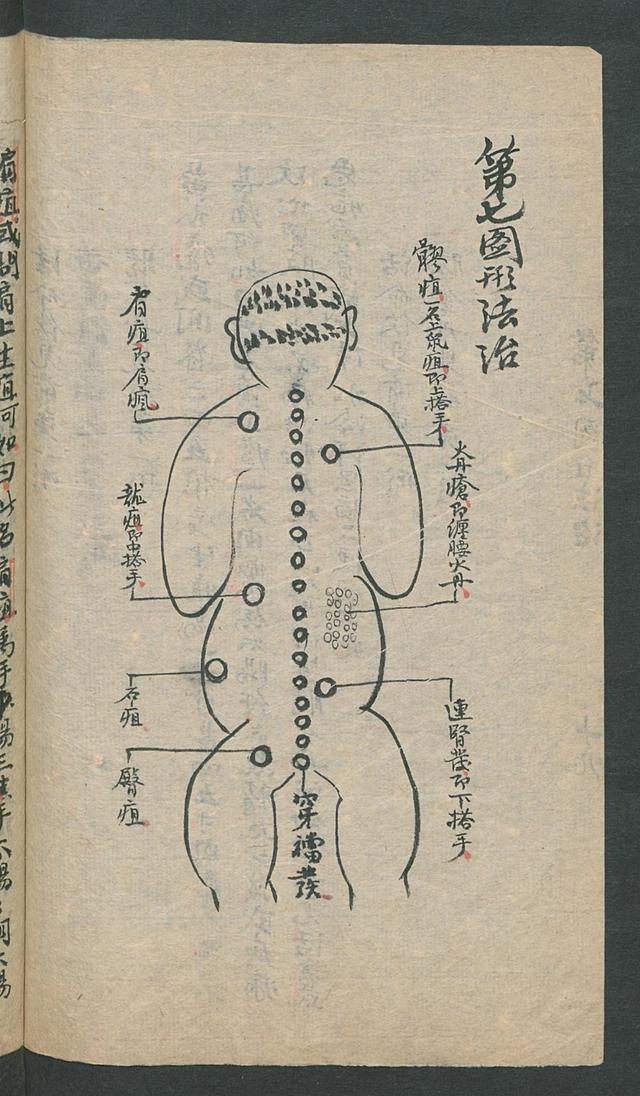 第七圖形法治
髎疽一名上鼠疽即上搭手
火丹瘡即纏腰火丹
連腎發即下搭手
穿襠發
肩疽即肩瘋
龍疽即中搭手
石疽
臀疽
肩疽或問肩上生疽何如曰此名肩疽焉手少陽三焦手太陽